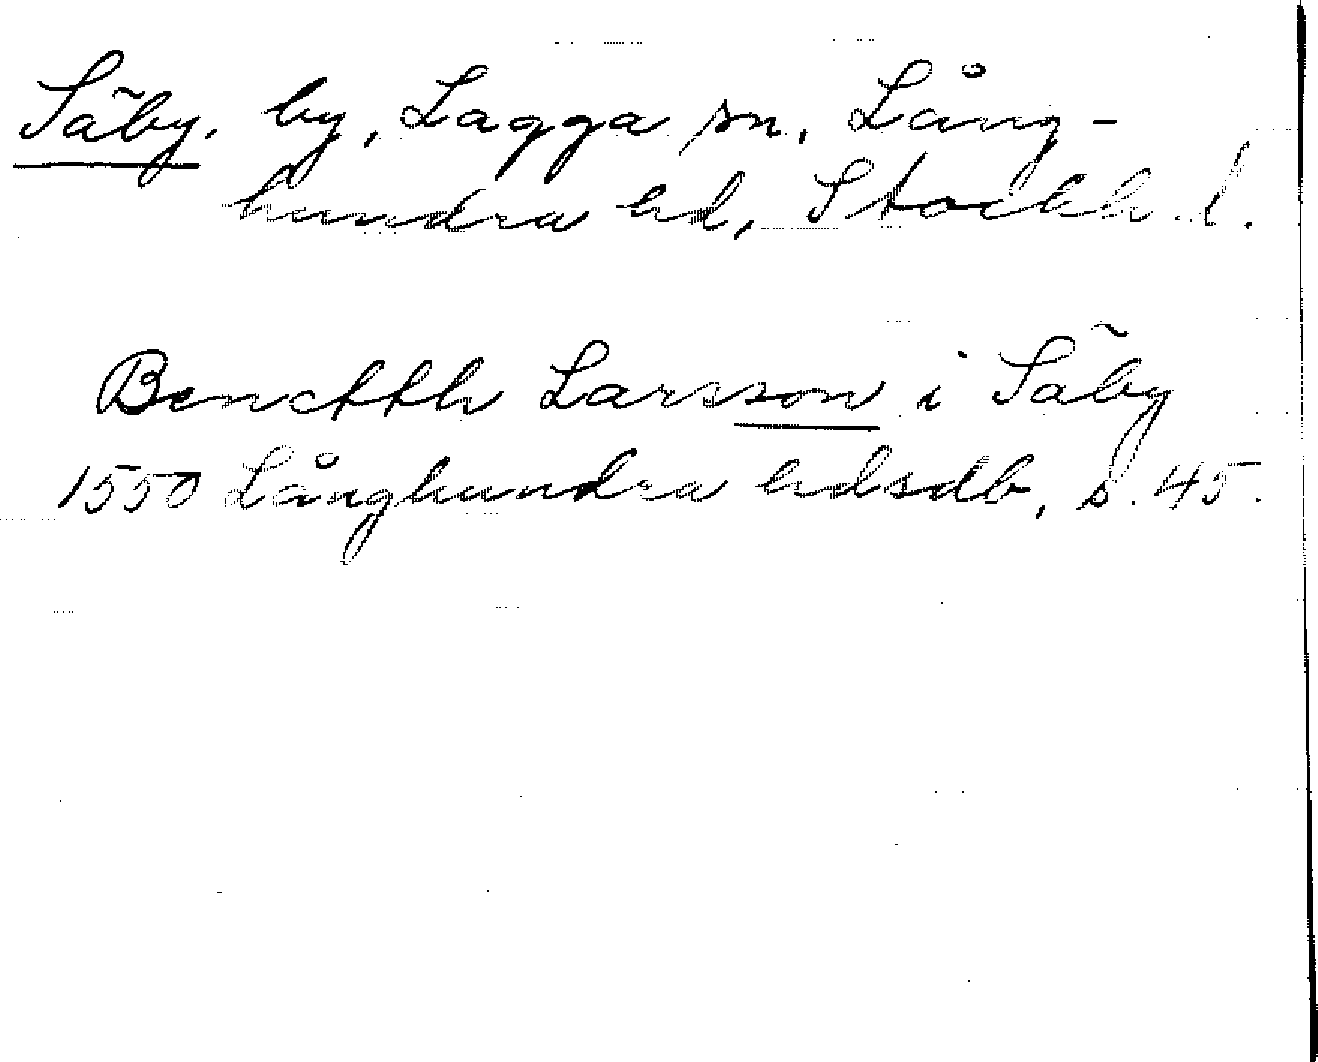 Säby, by, Lagga sn, Lång-
hundra hd, Stockh. l.
Benctth Larsson i Säby
1550 Långhundra hdsdb, s. 45.